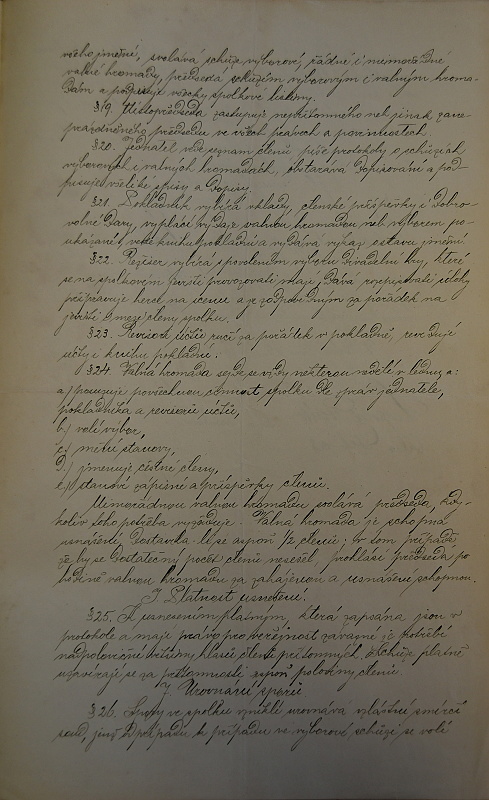 všeho jmění, svolává schůze výborové, řádné i mimořádné
valné hromady, předsedá schůzím výborovým i valným hroma-
dám a podpisuje všecky spolkové listiny.
§19. Místopředseda zastupuje nepřítomného neb jinak zane-
prázdněného předsedu ve všech právech a povinnostech.
§20. Jednatel vede seznam členů píše protokoly o schůzích
výborových i valných hromadách, obstarává dopisování a pod-
pisuje veškeré spisy a dopisy.
§21. Pokladník vybírá vklady, členské příspěvky i dobro-
volné dary, vyplácí výdaje valnou hromadou neb výborem po-
ukázané, vede knihu pokladní a vydává výkaz o stavu jmění.
§22. Režisér vybírá s povolením výboru divadelní hry, které
se na spolkovém jevišti provozovati mají, dává rozepisovati úlohy
připravuje herce na scenu a je zodpovědným za pořádek na
jevišti i mezi členy spolku.
§23. Revisoři účtů ručí za pořádek v pokladně, revidují
účty i knihu pokladní.
§24. Valná hromada sejde se vždy některou neděli v lednu a:
a) posuzuje povšechnou činnost spolku dle zpráv jednatele,
pokladníka a revisorů účtů,
b) volí výbor,
c) mění stanovy,
d) jmenuje čestné členy,
e) stanoví zápisné a příspěvky členů.
Mimořádnou valnou hromadu svolává předseda, kdy-
koliv toho potřeba vyžaduje. Valná hromada je schopna
usnášení, dostaví-li se aspoň členů; v tom případě
že by se dostatečný počet členů nesešel, prohlásí předseda po
hodině valnou hromadu za zahájenou a usnášení schopnou.
Platnost usnešení.
§25. K usnesením platným, která zapsána jsou v
protokole a mají právo pro veřejnost závazné je potřebí
nadpoloviční většiny hlasů členů přítomných. Schůze platně
usnášejí se za přítomnosti aspoň poloviny členů.
Urovnání sporů
§26. Spory ve spolku vzniklé urovnává zvláštní smírčí
soud, jenž případ k případu ve výborové schůzi se volí